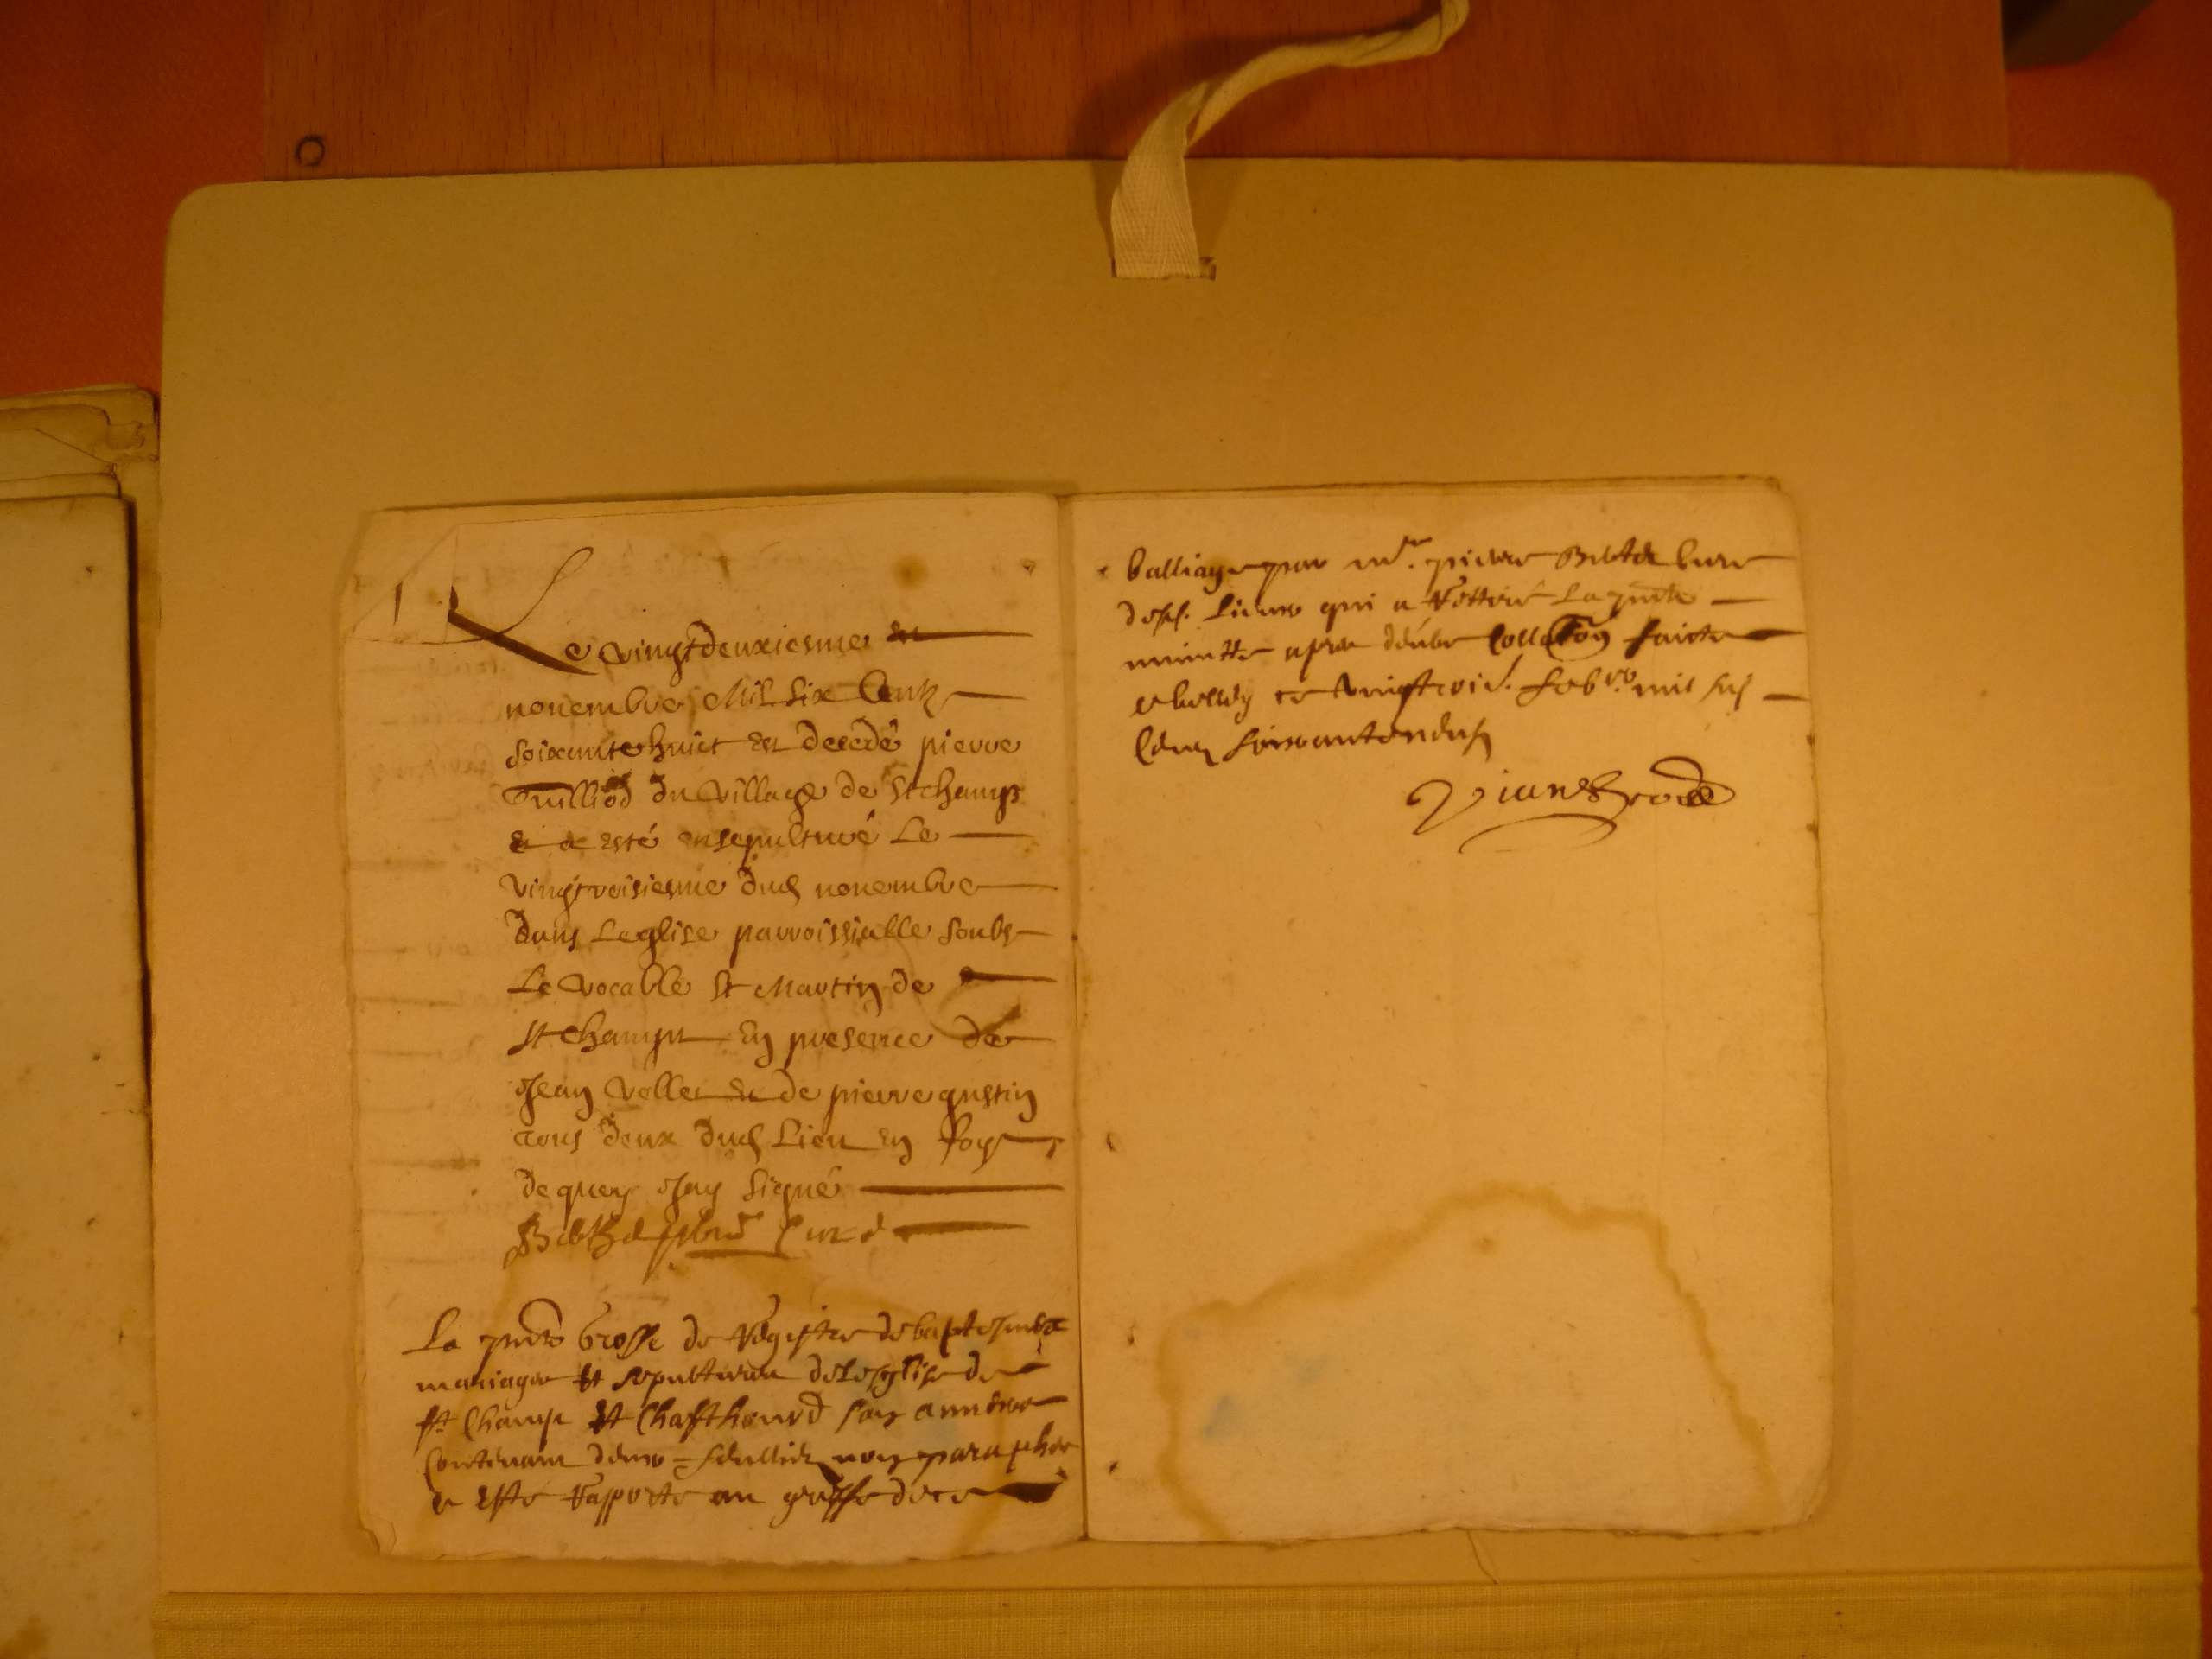 Le vingtdeuxiesme
novembre Mil six Centz
soixante huict est decedé pierre
Cuilliod du village de St champz
et a esté ensepulturé Le
vingtroisiesme dud novembre
dans Leglise parroissialle soubs
Le vocable St Martin de
St champt en presence de
Jean vollet et de pierre gustin
tous deux dud Lieu en foy
de quoy Jay signé
curé
La pnte Grosse de Registre de baptesmes
mariages et sepultures de lesglise de
st Champ et Chasthonod
Contenant deux feullietz non paraphes
a esté Rapporte au greffe de ce
balliage par mre. pierre curé
desd. Lieux qui a Retiré La pnte
minutte apres deube Collaōn faicte
a belley ce vingt troi. febvr. mil six
Centz soixante neufz